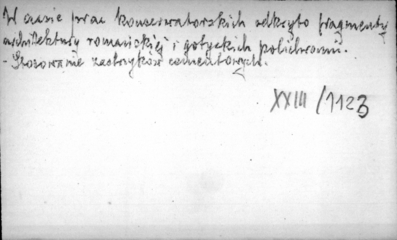 W czasie prac konserwatorskich odkryto fragmenty
architektury romańskiej i gotyckich polichromii.
- Stosowanie zastrzyków cementowych.
XXIII/1123